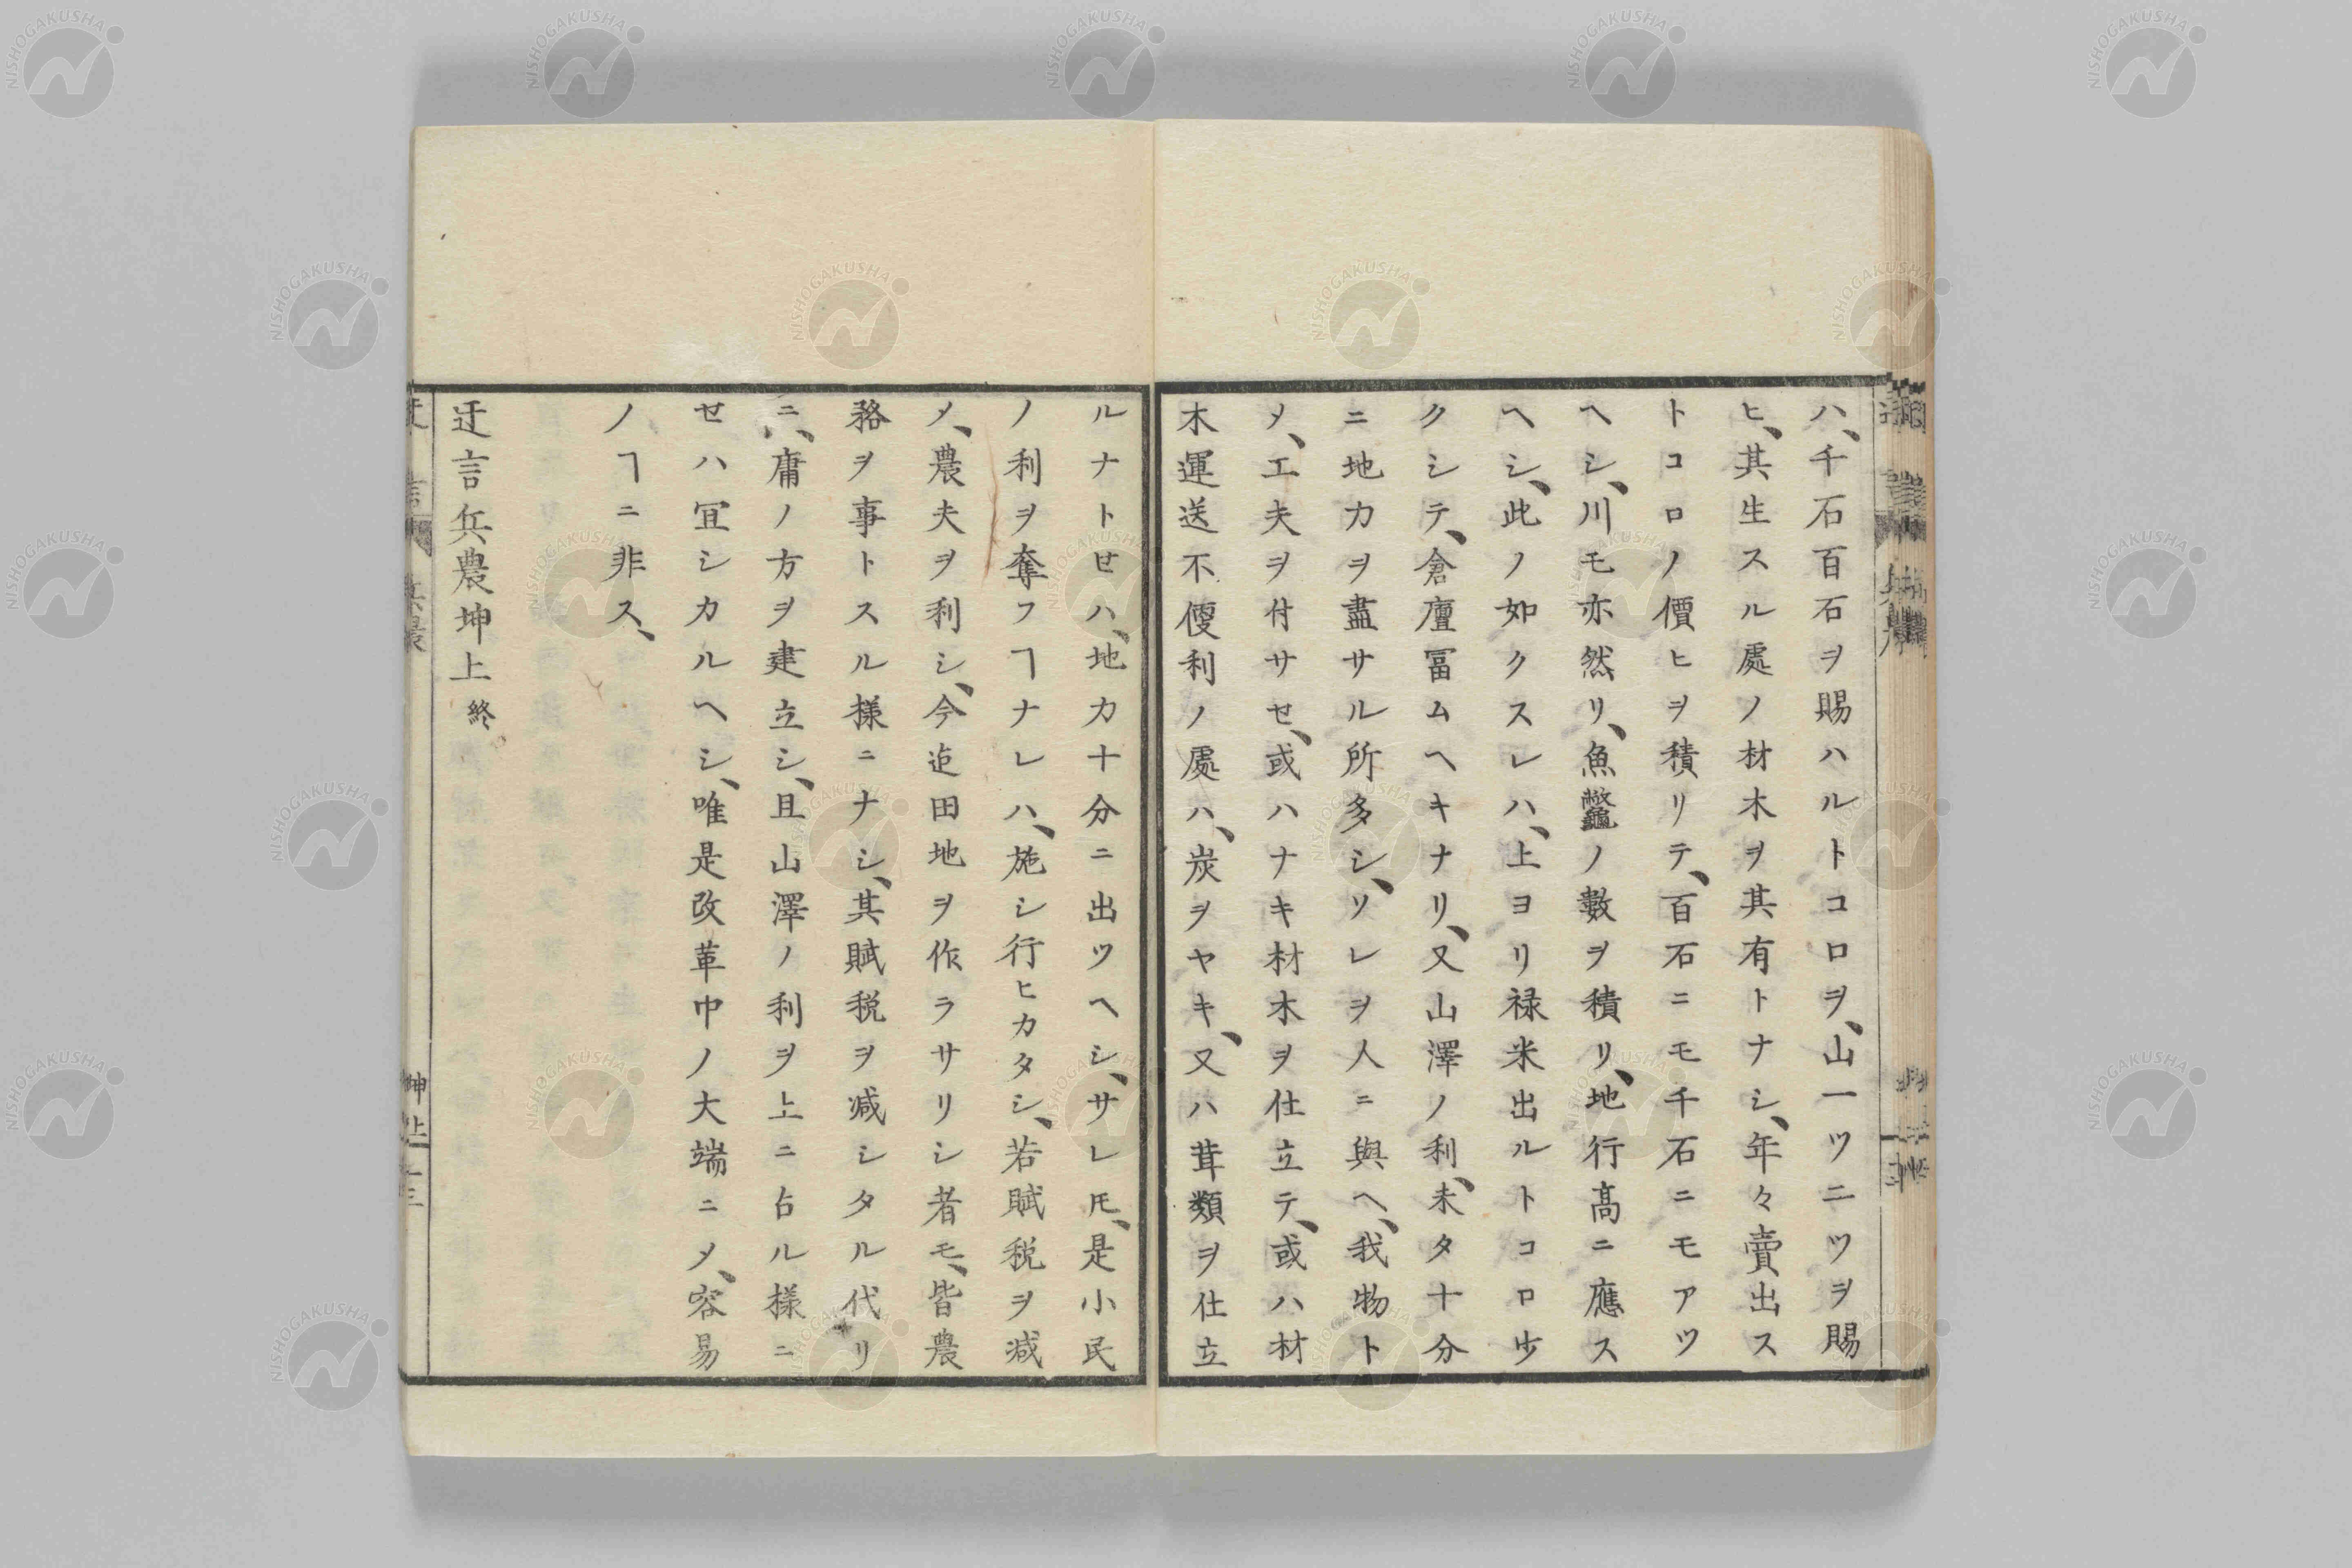 ハ、千石百石ヲ賜ハルトコロヲ、山一ツ二ツヲ賜
ヒ、其生スル處ノ材木ヲ其有トナシ、年々賣出ス
トコロノ價ヒヲ積リテ、百石ニモ千石ニモアツ
ヘシ、川モ亦然リ、魚鼈ノ數ヲ積リ、地行高ニ應ス
ヘシ、此ノ如クスレハ、上ヨリ禄米出ルトコロ少
クシテ、倉廩冨ムヘキナリ、又山澤ノ利、未タ十分
ニ地力ヲ盡サル所多シ、ソレヲ人ニ與ヘ、我物ト
メ、工夫ヲ付サセ、或ハナキ材木ヲ仕立テ、或ハ材
木運送不便利ノ處ハ、炭ヲヤキ、又ハ茸類ヲ仕立
ルナトセハ、地力十分ニ出ツヘシ、サレ𪜈、是小民
ノ利ヲ奪フヿナレハ、施シ行ヒカタシ、若賦税ヲ減
メ、農夫ヲ利シ、今迠田地ヲ作ラサリシ者モ、皆農
務ヲ事トスル様ニナシ、其賦税ヲ减シタル代リ
ニ、庸ノ方ヲ建立シ、且山澤ノ利ヲ上ニ占ル様ニ
セハ冝シカルヘシ、唯是改革中ノ大端ニメ、容易
ノヿニ非ス、
迂言兵農坤上 終
迂言 兵農 坤上 十三